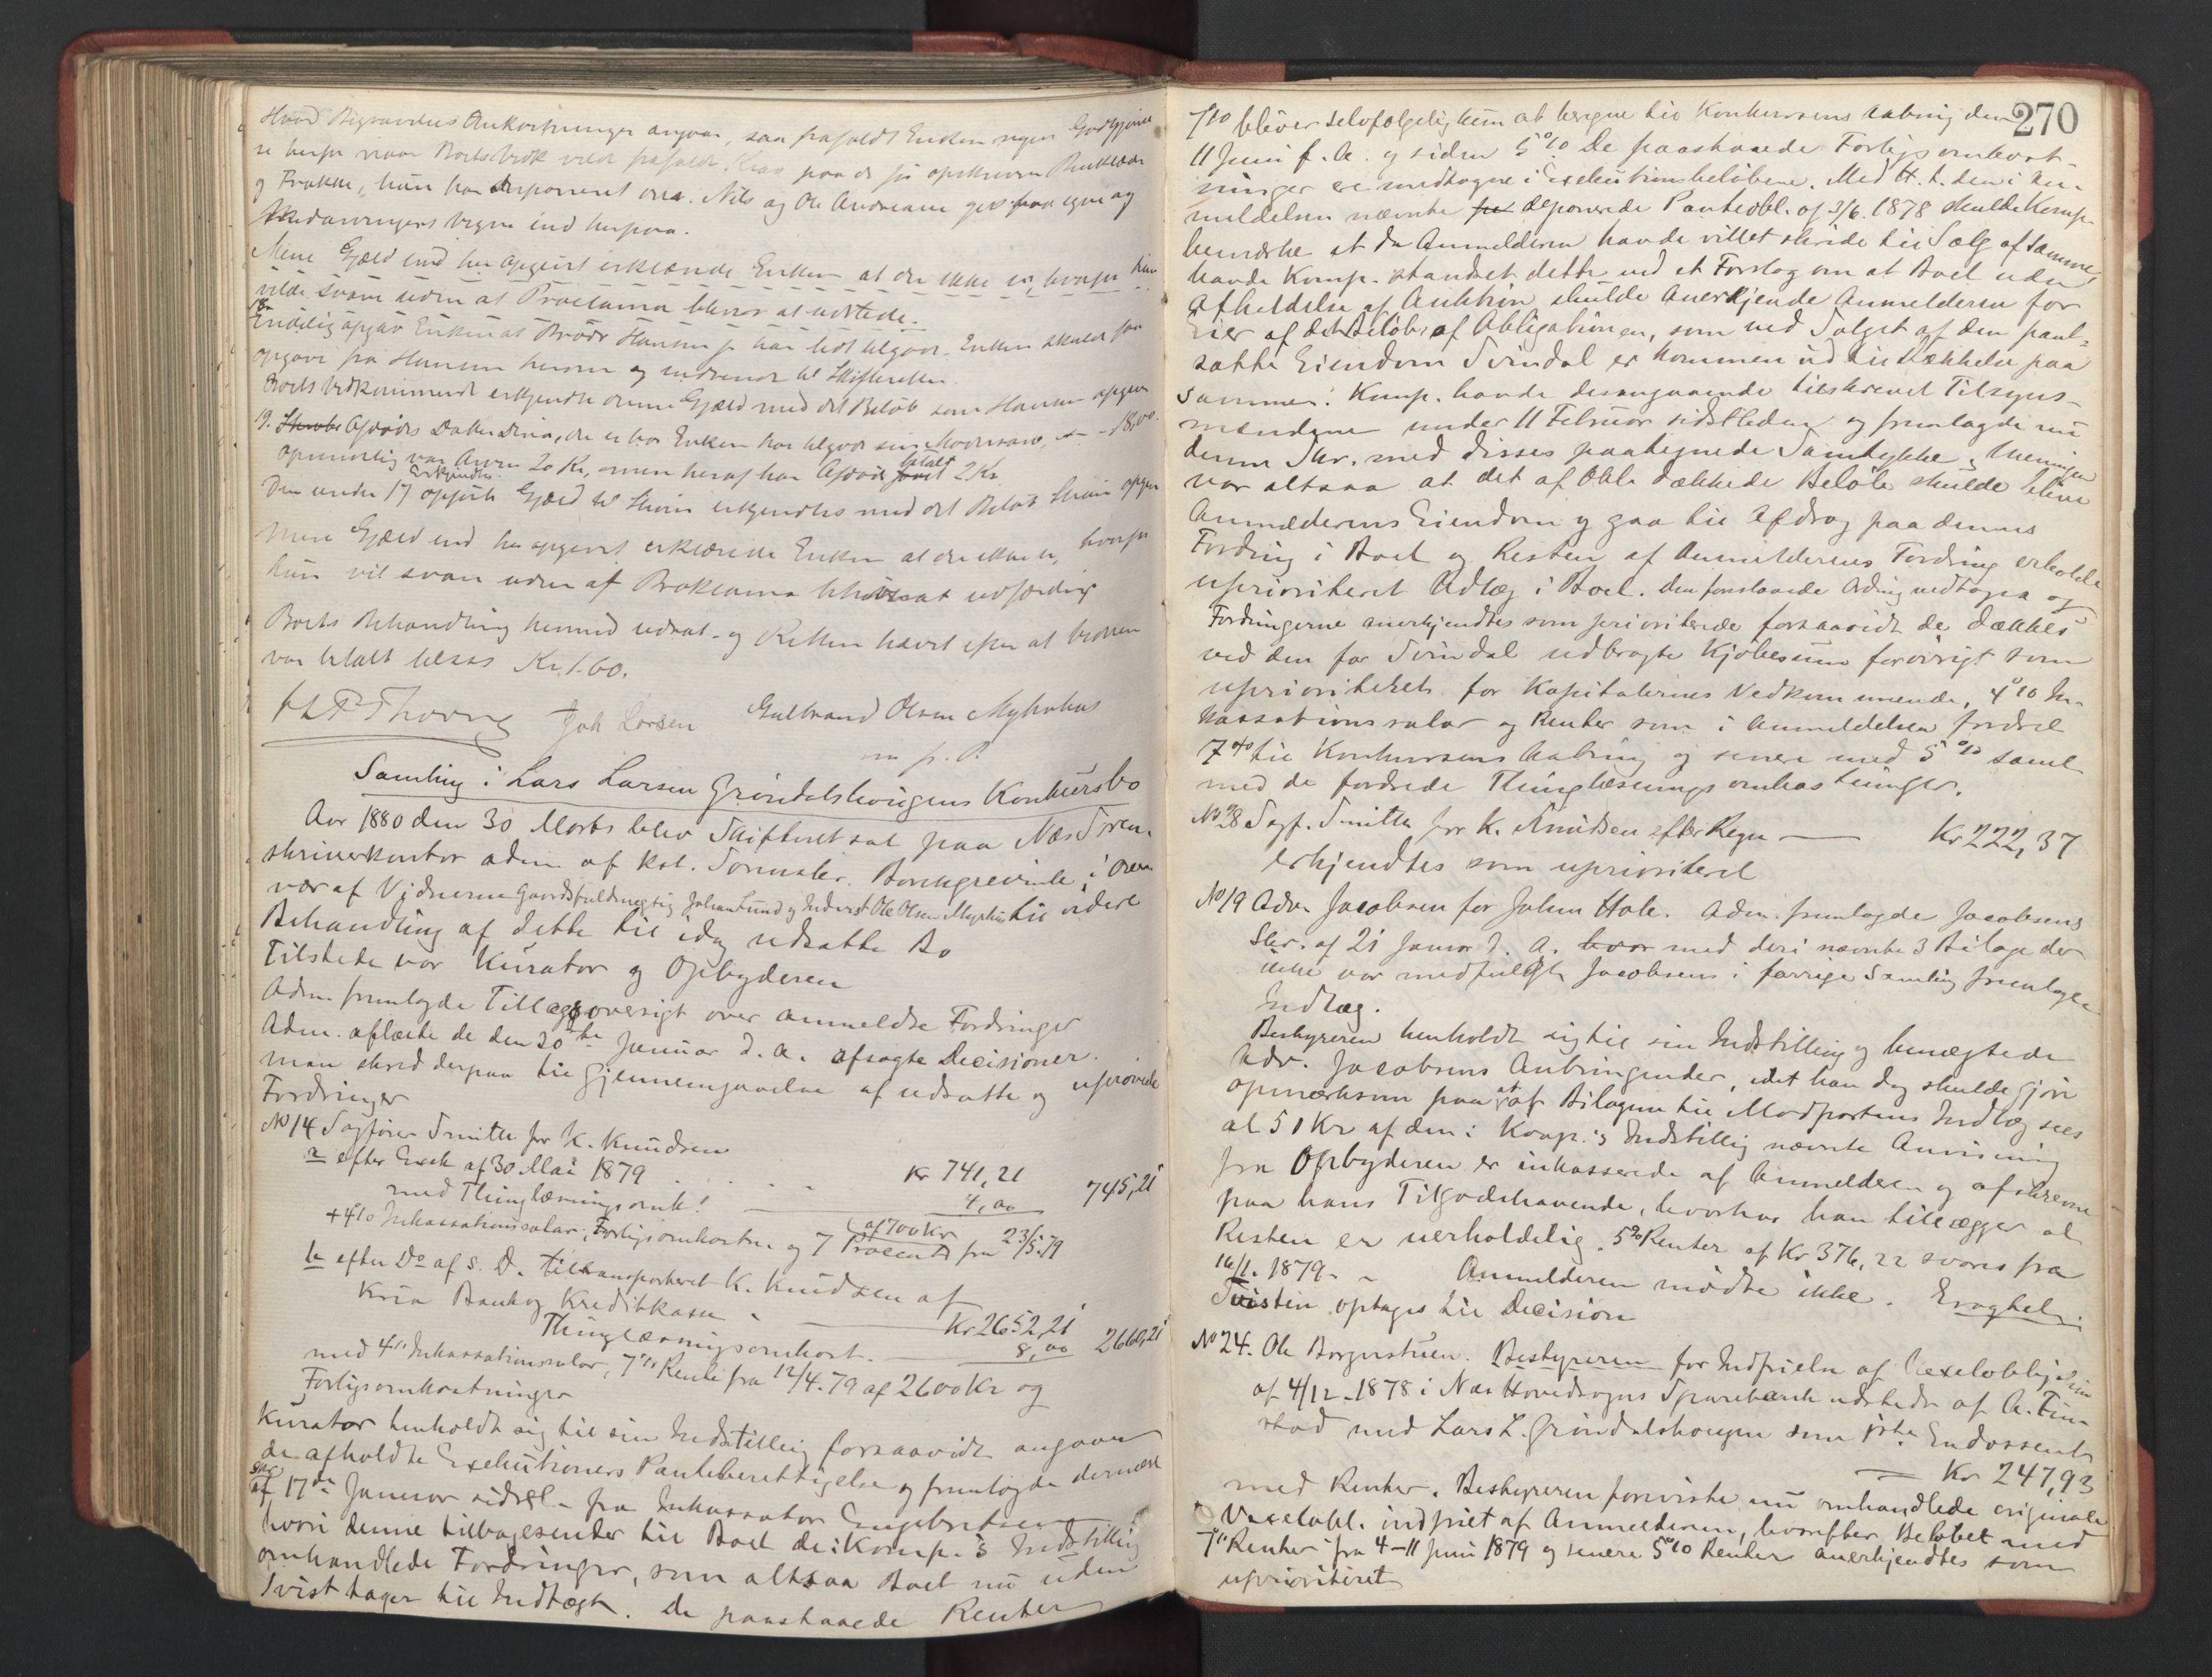 Hvad Bigravdens Omkostninger angaar, saa frafaldt Enken nogen Godtgjørel-
se herfor naar Boets Vedk vilde frafalde Krav paa de før opskrevne Penklæder
og Frakke, hun har deponeret ovs. Nils og Ole Andreasen gik paa egne og
Medarvingers Vegne ind herpaa.
Mere Gjæld end her opgivet erklærede Enken at der ikke er, hvorfor hun
vilde svare uden at Proclama blev at udstede.
18. Endelig opgav Enken at Brødr Hansen jr har lidt tilgode. Enken skulde faa
opgave fra Hansen herom og indsende til Skifteretten.
Boets Vedkommende erkjendte denne Gjæld med det Beløb som Hansen opgiver
19. Afdødes Datter Dina, der er hos Enken har tilgode sin Mødrearv, 18,00.
oprindelig var Arven 20 Kr, men heraf har Afdøde betalt 2 Kr.
Den under 17 opførte Gjæld til Thoin erkjendtes med det Beløb Thoin opgiver
Mere Gjæld end her opgivet erklærede Enken at der ikke er, hvorfor
hun vil svare uden at Proklama behøves at udfærdige
Boets Behandling hermed udsat - og Retten hævet efter at
var betalt Kr. 1.60.
Joh Larsen Gulbrand Olsen Myhrhus
m. p. P.
Samling i Lars Larsen Grøndalshougens Konkursbo
Aar 1880 den 30 Marts blev Skifteret sat paa Næs Soren-
skriverkontor adm. af kst. Sorenskr. Borchgrevink, i Over-
vær af Vidnerne Gaardsfuldmægtig Johan Lund og Inderst Ole Olsen Myrhus til videre
Behandling af dette til idag udsatte Bo
Tilstede var Kurator og Opbyderen
Adm. fremlagde Tillægsoversigt over anmeldte Fordringer
Adm. aflæste de den 20de Januar d. a. afsagte Decisioner.
man skred derpaa til Gjennemgaaelse af udsatte og uprøvede
Fordringer
No 14 Sagfører Smith for K. Knudsen
a efter Exek af 30 Mai 1879 . . . . Kr 741,21
med Thinglæsningsomk! 4,00 745,21
+ 4% Inkassationssalær, Forligsomkostn. og 7 Procent af 700 Kr fra 23/5.79
b efter Do af s. D. tiltransporteret K. Knudsen af
Kria Bank og Kreditkasse . Kr 2652,21
Thinglæsningsomkost. 8,00 2660,21
med 4% Inkassationssalær, 7% Rente fra 12/4.79 af 2600 Kr og
Forligsomkostninger
Kurator henholdt sig til sin Indstilling forsaavidt angaar
de afholdte Exekutioners Panteberettigelse og fremlagde dernæst
Skr. af 17de Januar sidstl. fra Inkassator Engebretsen
hvori denne tilbagesender til Boet de i Komp.'s Indstilling
omhandlede Fordringer, som altsaa Boet nu uden
Tvist tager til Indtægt. De paastaaede Renter
270
7% bliver selvfølgelig kun at beregne til Konkursens Aabning den
11 Juni f. A. og siden 5%. De paastaaede Forligsomkost-
ninger er medtagne i Exekutionsbeløbene. Med H. t. den i An-
meldelsen nævnte deponerede Panteobl. af 3/6. 1878 skulde Komp.
bemærke at da Anmelderen havde villet skride til Salg af samme,
havde Komp. standset dette ved et Forslag om at Boet uden
Afholdelse af Auktion skulde anerkjende Anmelderen for
Eier af det Beløb af Obligationen, som ved Salget af den pant-
satte Eiendom Svindal er kommen ud til Dækkelse paa
samme. Komp. havde desangaaende tilskrevet Tilsyns-
mændene under 11 Februar sidstleden og fremlagde nu
denne Skr. med disses paategnede Samtykke. Meningen
var altsaa at det af Obl. dækkede Beløb skulde blive
Anmelderens Eiendom og gaa til Afdrag paa dennes
Fordring i Boet og Resten af Anmelderens Fordring erholde
uprioriteret Udlæg i Boet. Den foreslaaede Ordning vedtoges og
Fordringerne anerkjendtes som prioriterede forsaavidt de dækkes
ved den for Svindal udbragte Kjøbesum forøvrigt som
uprioriteret for Kapitalernes Vedkommende, 4% In-
kassationssalær og Renter som i Anmeldelsen fordret
7% til Konkursens Aabning og senere med 5% samt
med de fordrede Thinglæsningsomkostninger.
No 28 Sagf. Smith for K. Knudsen efter Regn — Kr 222,37
erkjendtes som uprioriteret
No 19 Adv. Jacobsen for Johan Hole. Adm. fremlagde Jacobsens
Skr. af 21 Januar d. A. med deri nævnte 3 Bilage der
ikke var medfulgt Jacobsens i forrige Samling fremlagte
Indlæg.
Bestyreren henholdt sig til sin Indstilling og benægtede
Adv. Jacobsens Anbringender, idet han dog skulde gjøre
opmærksom paa at af Bilagene til Modpartens Indlæg sees
at 51 Kr af den i Komp.'s Indstilling nævnte Anvisning
fra Opbyderen er inkasserede af Anmelderen og afskrevne
paa hans Tilgodehavende, hvorhos han tillægger at
Resten er uerholdelig. 5% Renter af Kr 376,22 svares fra
16/1. 1879. – Anmelderen mødte ikke. Eragtet:
Tvisten optages til Decision
No 24. Ole Borgerstuen. Bestyreren for Indfrielse af Vexelobligation
af 4/12 - 1878 i Næs Hovedsogns Sparebank udstedt af A. Fin-
stad med Lars L. Grøndalshougen som 1ste Endossent
— Kr 247,93
med Renter. Bestyreren foreviste nu omhandlede originale
Vexelobl. indfriet af Anmelderen, hvorefter Beløbet med
7% Renter fra 4–11 Juni 1879 og senere 5% Renter anerkjendtes som
uprioriteret